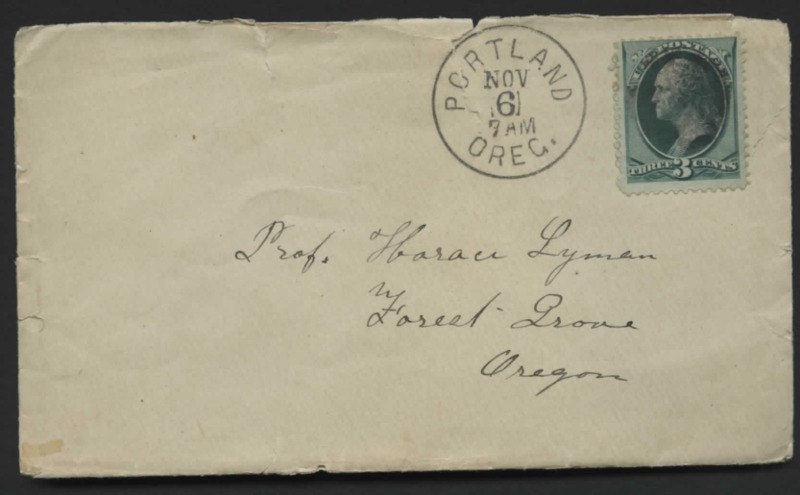 PORTLAND
NOV
6
7 AM
OREG.
U.S. POSTAGE
THREE 3 CENTS
Prof. Horace Lyman
Forest Grove
Oregon